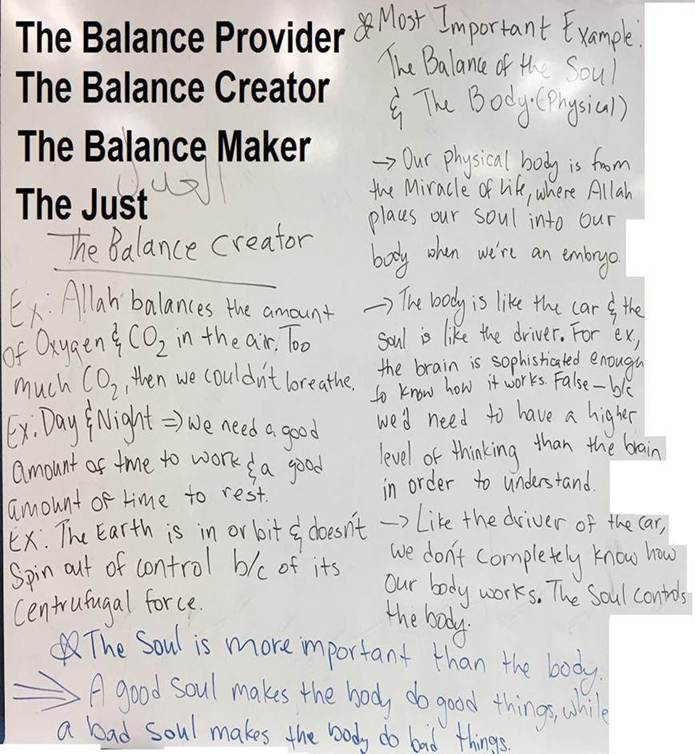 The Balance Provider
The Balance Creator
The Balance Maker
العدل
The Just
The Balance Creator
Ex: Allah balances the amount
of Oxygen & CO2 in the air. Too
much CO2, then we couldn't breathe.
Ex: Day & Night => we need a good
amount of time to work & a good
amount of time to rest.
Ex: The Earth is in orbit & doesn't
Spin out of control b/c of its
Centrufugal force.
Most Important Example:
The Balance of the Soul
& The Body. (Physical)
→ Our physical body is from
the Miracle of Life, where Allah
places our soul into our
body when we're an embryo.
→ The body is like the car & the
soul is like the driver. For ex,
the brain is sophisticated enough
to know how it works. False - b/c
we'd need to have a higher
level of thinking than the brain
in order to understand.
→ Like the driver of the car,
we don't completely know how
our body works. The Soul controls
the body.
The Soul is more important than the body.
A good soul makes the body do good things, while
a bad soul makes the body do bad things.